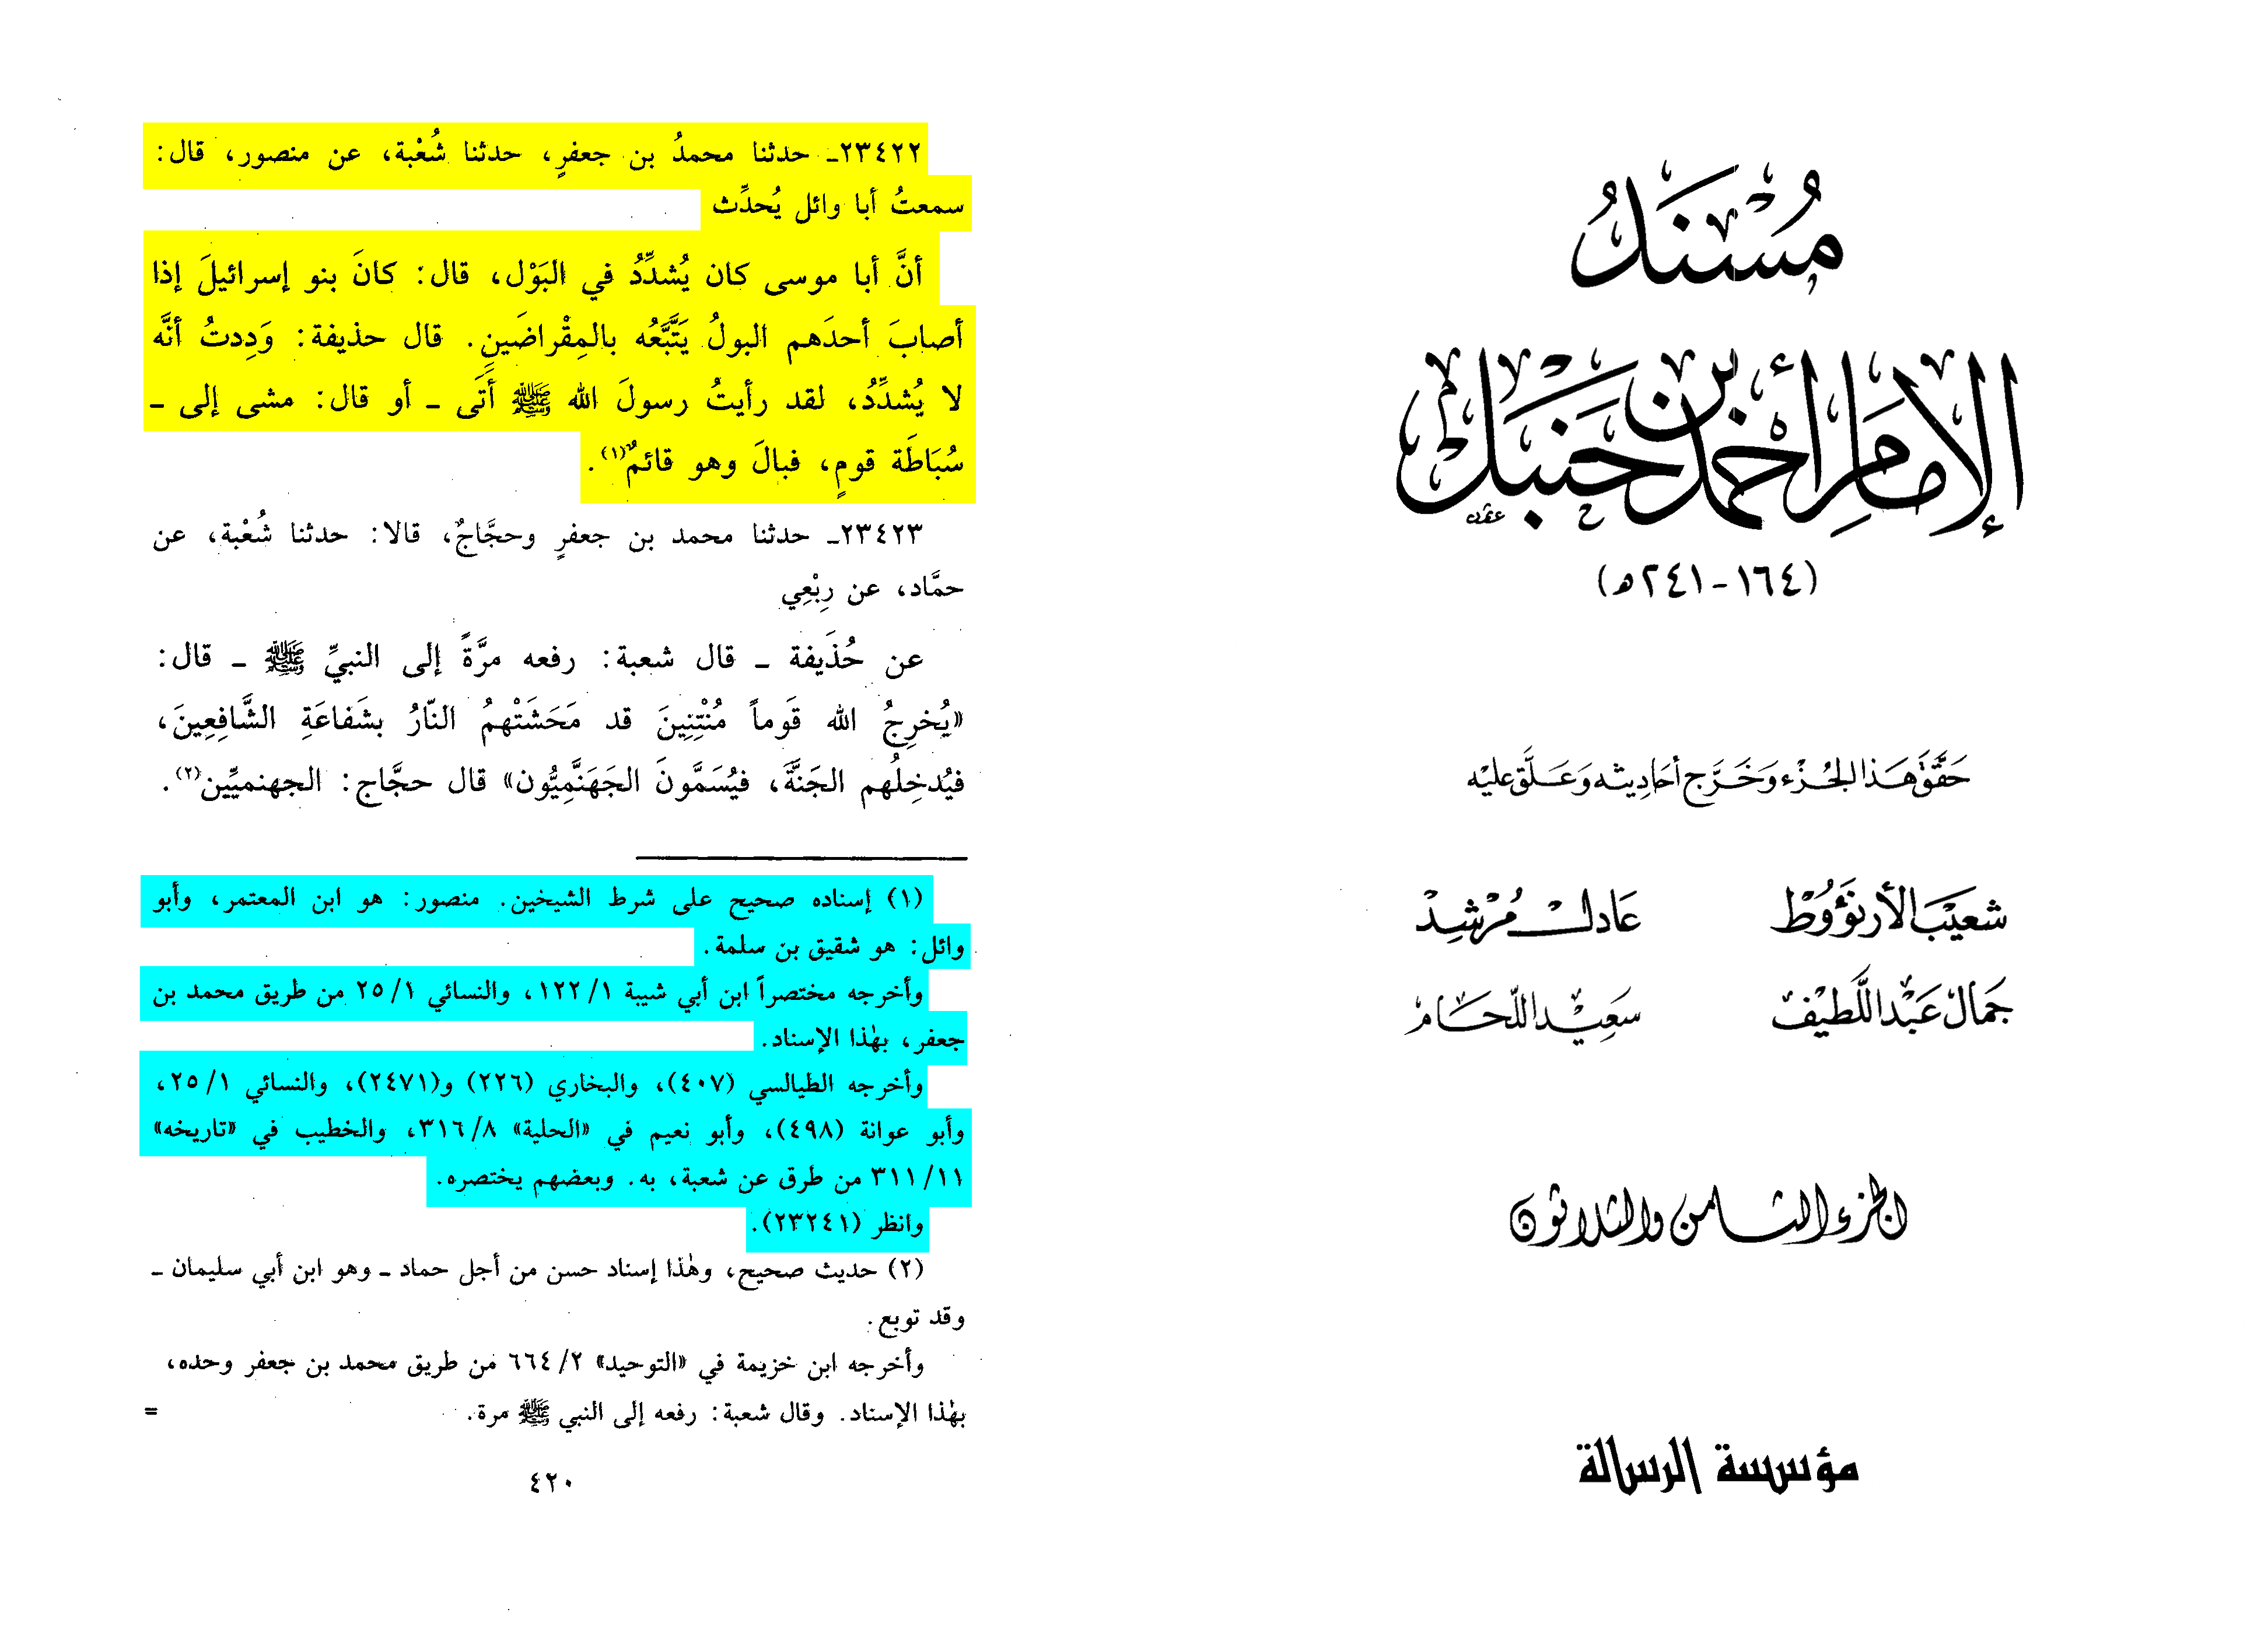 مُسْنَدُ
الإمَامِ أَحْمَدَ بْنِ حَنْبَل
(١٦٤-٢٤١هـ)
حَقَّقَ هَذا الجُزْء وَخَرَّج أحَادِيثه وَعَلَّق عليْه
شعَيْب الأرنؤوط عَادل مُرْشِد
جَمَال عَبْد اللَّطيْف سَعِيْد اللَّحَّام
الجزء الثامن والثلاثون
مؤسسة الرسالة
٢٣٤٢٢ـ حدثنا محمدُ بن جعفرٍ، حدثنا شُعْبة، عن منصور، قال:
سمعتُ أبا وائل يُحدِّث
أنَّ أبا موسى كان يُشدِّدُ في البَوْل، قال: كانَ بنو إسرائيلَ إذا
أصابَ أحدَهم البولُ يَتَّبَّعُه بالمِقْراضَينِ. قال حذيفة: وَدِدتُ أنَّه
لا يُشدِّدُ، لقد رأيتُ رسولَ الله ﷺ أَتَى ـ أو قال: مشى إلى ـ
سُبَاطَة قومٍ، فبالَ وهو قائمٌ(١).
٢٣٤٢٣ـ حدثنا محمد بن جعفرٍ وحجَّاجٌ، قالا: حدثنا شُعْبة، عن
حمَّاد، عن رِبْعِي
عن حُذَيفة ـ قال شعبة: رفعه مرَّةً إلى النبيِّ ﷺ ـ قال:
«يُخرِجُ الله قَوماً مُنْتِنِينَ قد مَحَشَتْهمُ النّارُ بشَفاعَةِ الشَّافِعِينَ،
فيُدخِلُهم الجَنَّةَ، فيُسَمَّونَ الجَهَنَّمِيُّون» قال حجَّاج: الجهنميِّين(٢).
(١) إسناده صحيح على شرط الشيخين. منصور: هو ابن المعتمر، وأبو
وائل: هو شقيق بن سلمة.
وأخرجه مختصراً ابن أبي شيبة ١/ ١٢٢، والنسائي ١/ ٢٥ من طريق محمد بن
جعفر، بهٰذا الإسناد.
وأخرجه الطيالسي (٤٠٧)، والبخاري (٢٢٦) و(٢٤٧١)، والنسائي ١/ ٢٥،
وأبو عوانة (٤٩٨)، وأبو نعيم في «الحلية» ٨/ ٣١٦، والخطيب في «تاريخه»
١١/ ٣١١ من طرق عن شعبة، به. وبعضهم يختصره.
وانظر (٢٣٢٤١).
(٢) حديث صحيح، وهٰذا إسناد حسن من أجل حماد ـ وهو ابن أبي سليمان ـ
وقد توبع.
وأخرجه ابن خزيمة في «التوحيد» ٢/ ٦٦٤ من طريق محمد بن جعفر وحده،
بهٰذا الإسناد. وقال شعبة: رفعه إلى النبي ﷺ مرة. =
٤٢٠